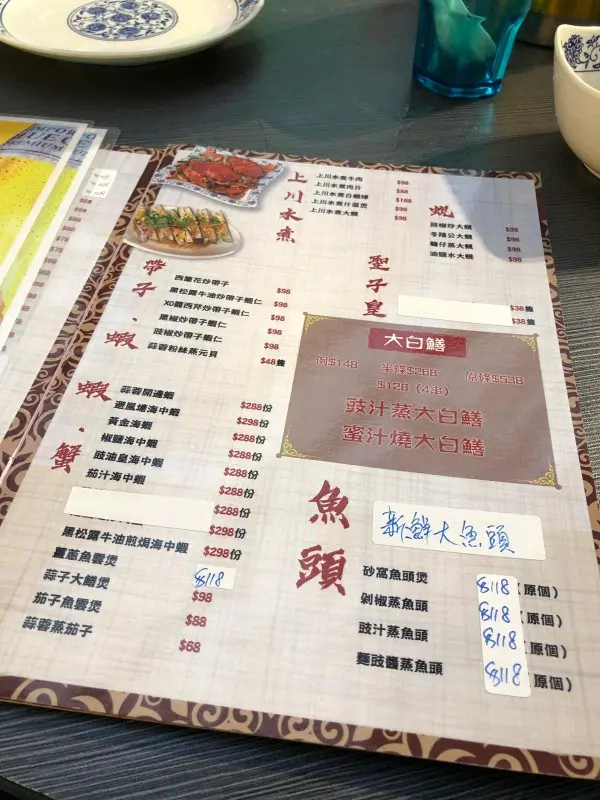 上川水煮
上川水煮牛肉 $98
上川水煮肉片 $88
$168
$98
上川水煮大蜆 $98
蜆
豉椒炒大蜆 $98
冬陰公大蜆 $98
$98
油鹽水大蜆 $98
聖子皇
$38隻
$38隻
帶子·蝦
西蘭花炒帶子 $98
黑松露牛油炒帶子蝦仁 $98
XO醬西芹炒帶子蝦仁 $98
黑椒炒帶子蝦仁 $98
豉椒炒帶子蝦仁 $98
蒜蓉粉絲蒸元貝 $48隻
大白鱔
例$148 半條$268 原條$538
$128 (4串)
豉汁蒸大白鱔
蜜汁燒大白鱔
蝦·蟹
蒜蓉開邊蝦 $288份
避風塘海中蝦 $298份
黃金海蝦 $288份
椒鹽海中蝦 $288份
豉油皇海中蝦 $288份
茄汁海中蝦 $288份
$288份
黑松露牛油煎焗海中蝦 $298份
薑蔥魚雲煲 $298份
蒜子大鱔煲 $118
茄子魚雲煲 $98
蒜蓉蒸茄子 $88
$68
魚頭
新鮮大魚頭
砂窩魚頭煲 $118 (原個)
剁椒蒸魚頭 $118 (原個)
豉汁蒸魚頭 $118 (原個)
麵豉醬蒸魚頭 $118 (原個)